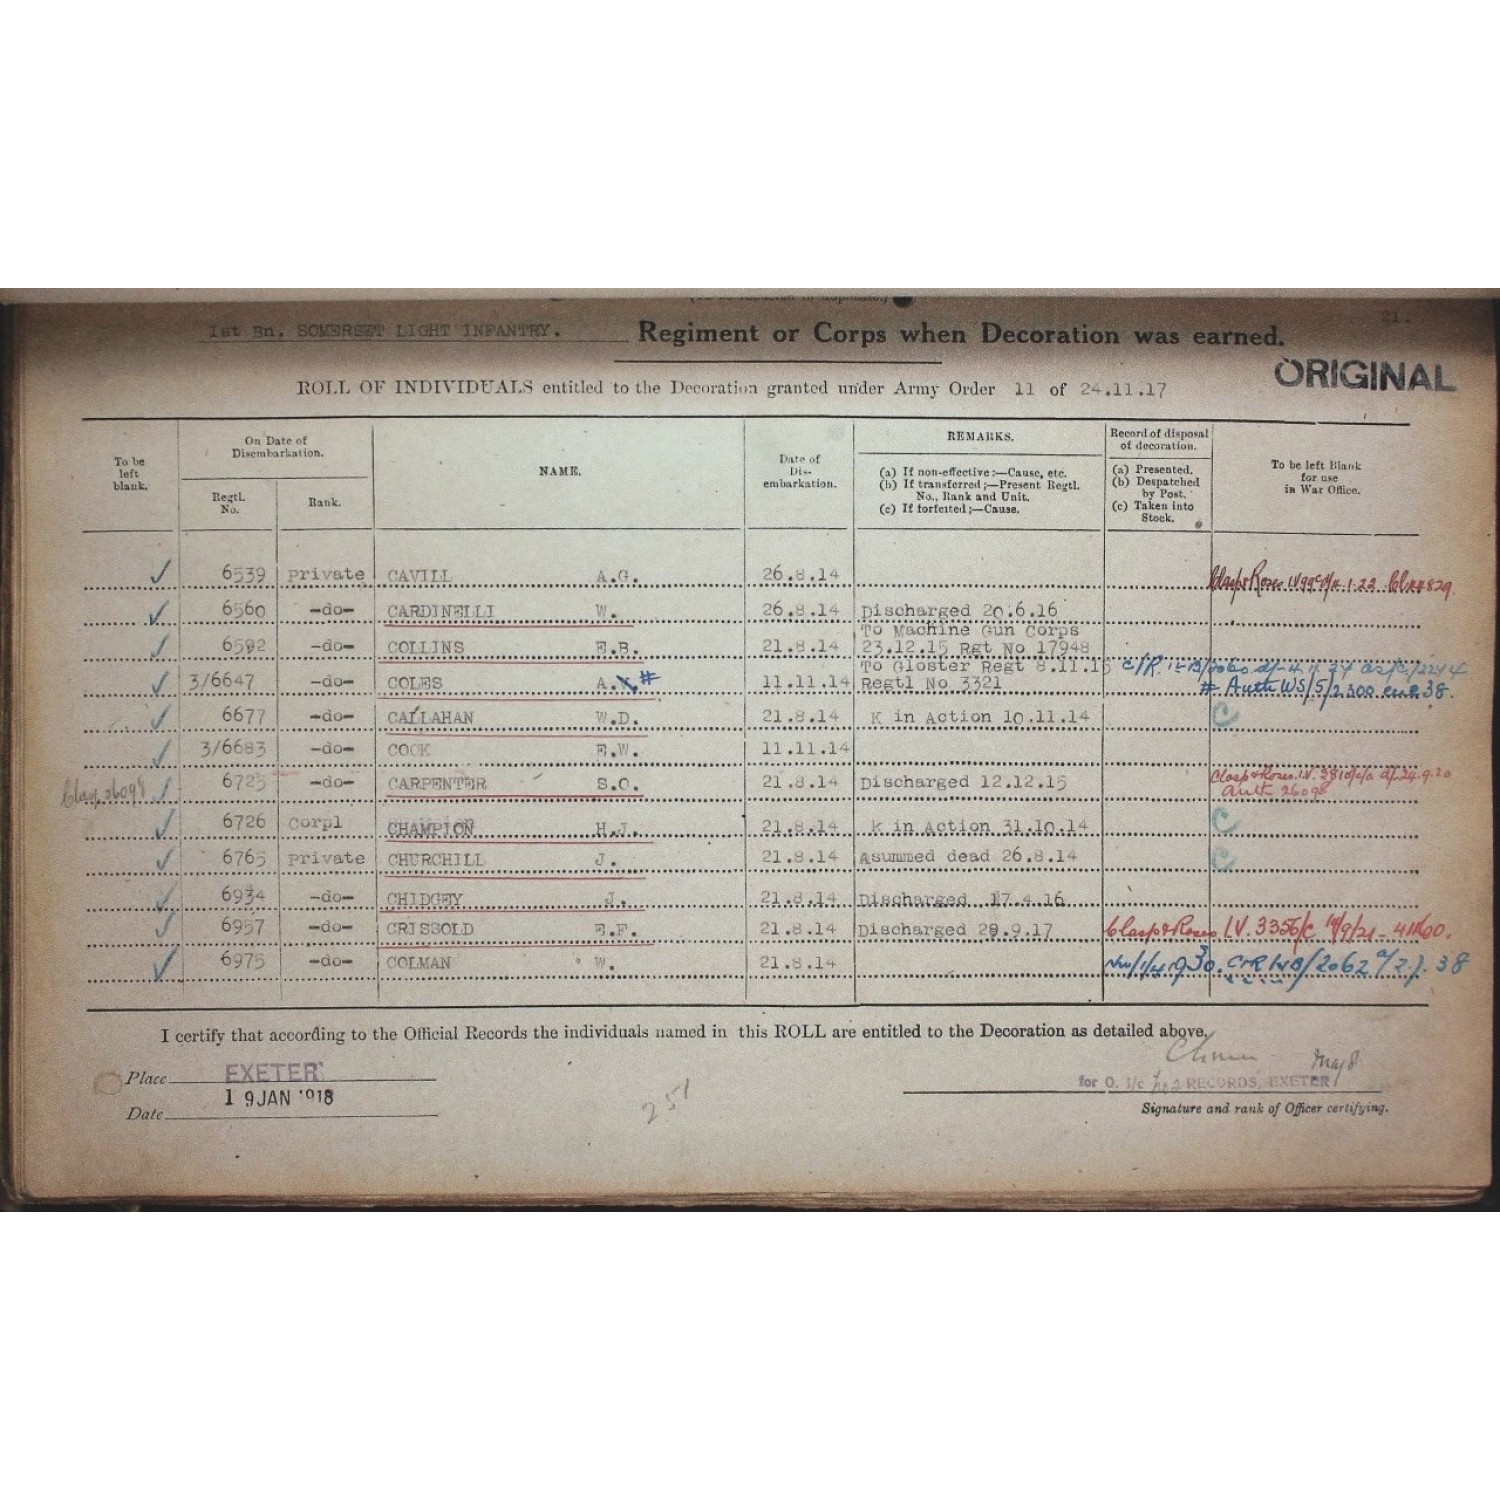 21.
1st Bn. SOMERSET LIGHT INFANTRY. Regiment or Corps when Decoration was earned.
ORIGINAL
ROLL OF INDIVIDUALS entitled to the Decoration granted under Army Order 11 of 24.11.17
To be left blank. On Date of Disembarkation. Regtl. No. Rank. NAME. Date of Dis-embarkation. REMARKS. (a) If non-effective;—Cause, etc. (b) If transferred;—Present Regtl. No., Rank and Unit. (c) If forfeited;—Cause. Record of disposal of decoration. (a) Presented. (b) Despatched by Post. (c) Taken into Stock. To be left Blank for use in War Office.
6539 Private CAVILL A.G. 26.8.14 Clasp & Roses
6560 -do- CARDINELLI W. 26.8.14 Discharged 20.6.16
To Machine Gun Corps
6592 -do- COLLINS E.B. 21.8.14 23.12.15 Rgt No 17948
To Gloster Regt 8.11.15
3/6647 -do- COLES A. # 11.11.14 Regtl No 3321 # Auth WS/5/2300 38.
6677 -do- CALLAHAN W.D. 21.8.14 K in Action 10.11.14 C
3/6683 -do- COOK E.W. 11.11.14
Clasp 26098 6725 -do- CARPENTER S.O. 21.8.14 Discharged 12.12.15 Clasp & Roses I.V. 24.9.20
Auth 26098
6726 Corpl CHAMPION H.J. 21.8.14 K in Action 31.10.14 C
6765 Private CHURCHILL J. 21.8.14 Asummed dead 26.8.14 C
6934 -do- CHIDGEY J. 21.8.14 Discharged 17.4.16
6957 -do- CRISSOLD E.F. 21.8.14 Discharged 29.9.17 Clasp & Roses I.V. 3356/C
6975 -do- COLMAN W. 21.8.14
I certify that according to the Official Records the individuals named in this ROLL are entitled to the Decoration as detailed above.
Place EXETER.
for O. i/c No 2 RECORDS, EXETER
Date 19 JAN 1918
251
Signature and rank of Officer certifying.